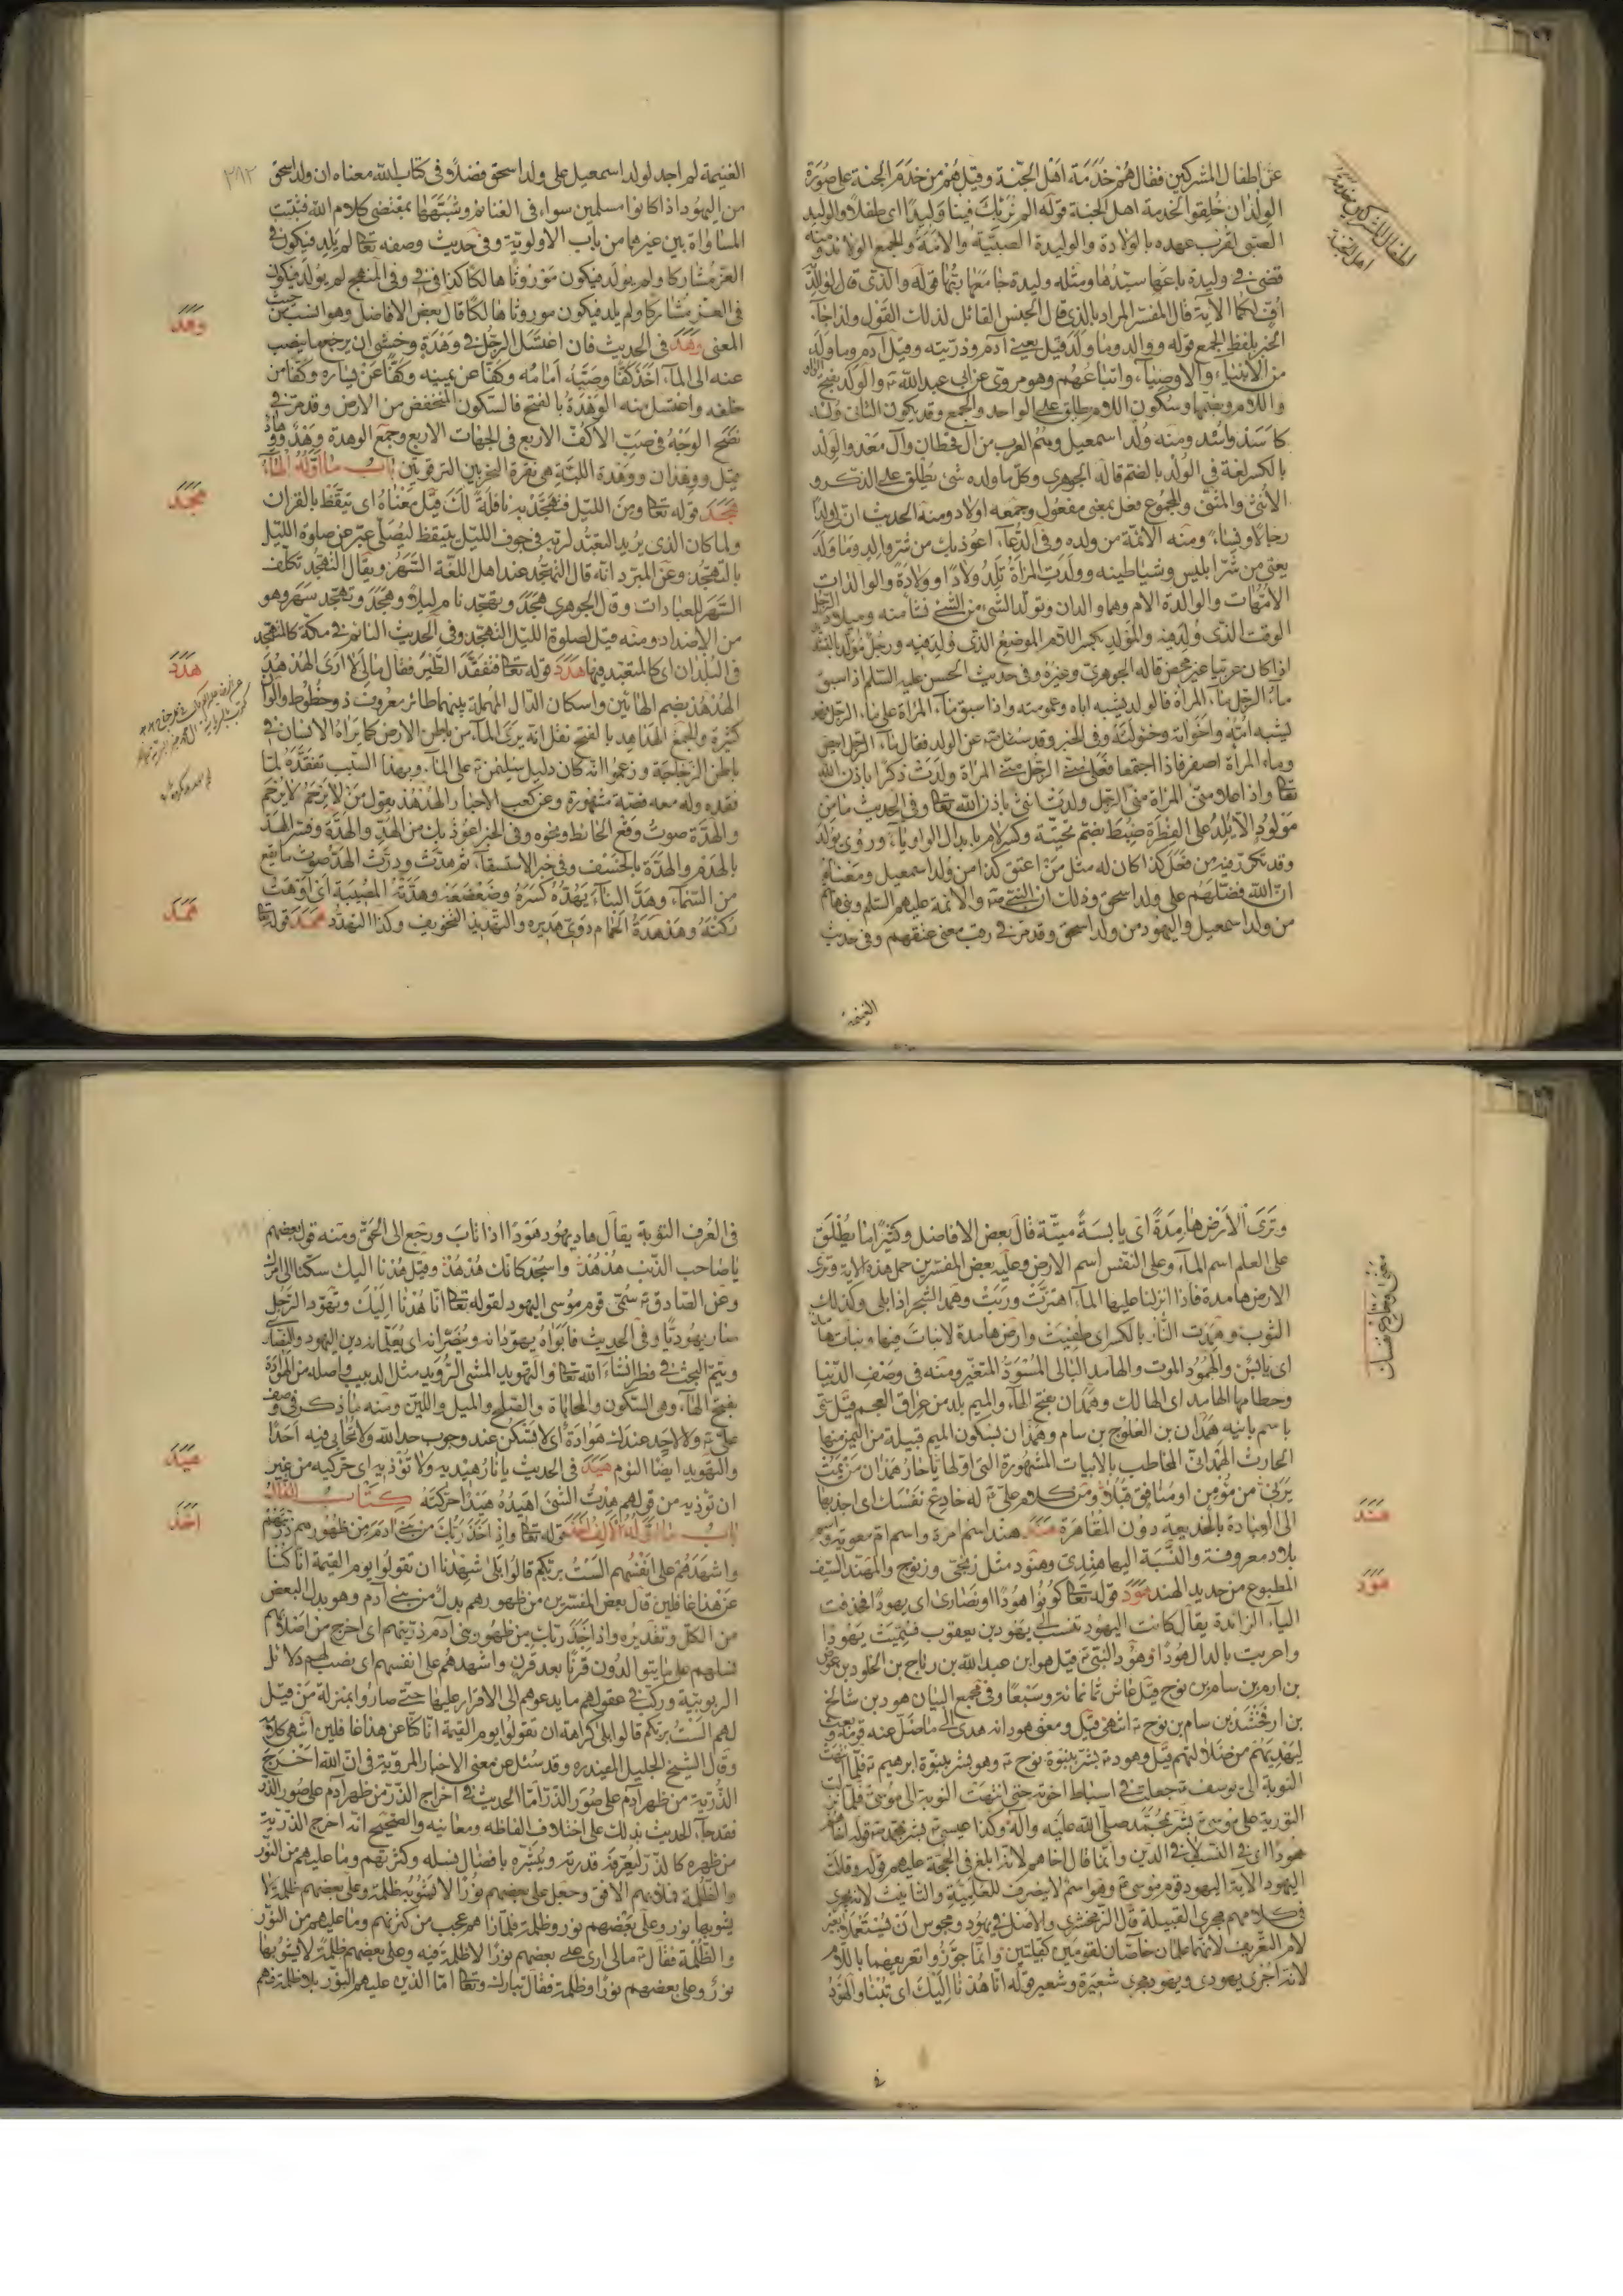 عن اطفال المشركين فقال هم خدمة اهل الجنة وقيل هم من خدم الجنة على صورة
الولدان خلقوا لخدمة اهل الجنة قوله الم نربك فينا وليدا اى طفلا والوليد
الصبى لقرب عهده بالولادة والوليدة الصبية والامة والجمع الولائد ومنه
قضى فى وليدة باعها سيدها ومثله وليدة جامعها ربها قوله والذى قال لوالديه
اف لكما الآية قال المفسر المراد بالذى قال الجنس القائل لذلك القول ولذا جاء
الخبر بلفظ الجمع قوله ووالد وما ولد قيل يعنى آدم وذريته وقيل آدم وما ولد
من الانبياء والاوصياء واتباعهم وهو مروى عن ابى عبد الله ع والولد بفتح الواو
واللام وضمها وسكون اللام يطلق على الواحد والجمع وقد يكون الثانى
كاسد واسد ومنه ولد اسمعيل ويتم العرب من آل قحطان وآل معد والولد
بالكسر لغة فى الولد بالضم قاله الجوهرى وكل ما ولده شئ يطلق على الذكر و
الانثى والمثنى والمجموع فعل بمعنى مفعول وجمعه اولاد ومنه الحديث
رجالا ونساء ومنه الائمة من ولده وفى الدعاء اعوذ بك من شر والد وما ولد
يعنى من شر ابليس وشياطينه وولدت المراة تلد ولادا وولادة والوالدات
الامهات والوالدة الام وهما والدان وتولد الشئ من الشئ نشا منه وميلاد الرجل
الوقت الذى ولد فيه والمولد بكسر اللام الموضع الذى ولد فيه ورجل مولد بالفتح
اذا كان عربيا غير محض قاله الجوهرى وغيره وفى حديث الحسن عليه السلم اذا سبق
ماء الرجل ماء المراة فالولد يشبه اباه وعمومته واذا سبق ماء المراة على ماء الرجل
يشبه امه واخواله وخؤلته وفى الخبر وقد سئل عن الولد فقال ماء الرجل ابيض
وماء المراة اصفر فاذا اجتمعا فعلى منى الرجل منى المراة ولدت ذكرا باذن الله
تعالى واذا علا منى المراة منى الرجل ولدت انثى باذن الله تعالى وفى الحديث ما من
مولود الا يلد على الفطرة ضبط بضم تحتية وكسر لام بابدال الواو ياء وروى يولد
وقد تكرر فيه من فعل كذا كان له مثل من اعتق كذا من ولد اسمعيل ومعناه
ان الله فضلهم على ولد اسحق وذلك ان النبى ص والائمة عليهم السلم وبنى هاشم
من ولد اسمعيل واليهود من ولد اسحق وقد مر فى رقب معنى عتقهم وفى حديث
الغنيمة
اطفال المشركين خدمة
اهل الجنة
الغنيمة لم اجد لولد اسمعيل على ولد اسحق فضلا وفى كتاب الله معناه ان ولد اسحق
من اليهود اذا كانوا مسلمين سواء فى الغنائم وشبهها بمقتضى كلام الله فثبت
المساواة بين غيرهما من باب الاولوية وفى حديث وصفه تعالى لم يلد فيكون فى
العز مشاركا ولم يولد فيكون موروثا هالكا كذا فى فى وفى النهج لم يولد فيكون
فى العز مشاركا ولم يلد فيكون موروثا هالكا قال بعض الافاضل وهو انسب من حيث
المعنى وهد فى الحديث فان اغتسل الرجل فى وهدة وخشى ان يرجع ما ينصب
عنه الى الماء اخذ كفا وصبه امامه وكفا عن يمينه وكفا عن يساره وكفا من
خلفه واغتسل منه الوهدة بالفتح فالسكون المنخفض من الارض وقد مر فى
نضح الوجه فى صب الاكف الاربع فى الجهات الاربع وجمع الوهدة وهد ووهاد
ووهدة اللبة هى نقرة النحر بين الترقوتين باب ما اوله الهاء
هجد قوله تعالى ومن الليل فتهجد به نافلة لك قيل معناه اى تيقظ بالقران
ولما كان الذى يريد التعبد لربه فى جوف الليل يتيقظ ليصلى عبر عن صلوة الليل
بالتهجد وعن المبرد انه قال التهجد عند اهل اللغة السهر ويقال التهجد تكلف
السهر للعبادات وقال الجوهرى هجد وتهجد نام ليلا وهجد وتهجد سهر وهو
من الاضداد ومنه قيل لصلوة الليل التهجد وفى الحديث النائم فى مكة كالمتهجد
فى البلدان اى كالمتعبد فيها هدد قوله تعالى فتفقد الطير فقال مالى لا ارى الهدهد
الهدهد بضم الهائين واسكان الدال المهملة بينهما طائر معروف ذو خطوط والوان
كثيرة والجمع الهداهد بالفتح نقل انه يرى الماء من باطن الارض كما يراه الانسان فى
باطن الزجاجة وزعموا انه كان دليل سليمن على الماء وبهذا السبب تفقده لما
فقده وله معه قصة مشهورة وعن كعب الاحبار الهدهد يقول من لا يرحم لا يرحم
والهدة صوت وقع الحائط ونحوه وفى الخبر اعوذ بك من الهد والهدة وفسر الهد
بالهدم والهدة بالخسف وفى خبر الاستسقاء ثم هدت ودرت الهد صوت ما يقع
من السماء وهد البناء يهده كسره وضعضعه وهدته المصيبة اى اوهنت
ركنه وهدهدة الحمام دوى هديره والتهديد التخويف وكذا التهدد همد قوله تعالى
وهد
هجد
هدد
همد
٣٩٢
وترى الارض هامدة اى يابسة ميتة قال بعض الافاضل وكثيرا ما يطلق
على العلم اسم الماء وعلى النفس اسم الارض وعليه بعض المفسرين حمل هذه الاية وترى
الارض هامدة فاذا انزلنا عليها الماء اهتزت وربت وهمد الشجر اذا بلى وكذلك
الثوب وهمدت النار بالكسر اى طفيت وارض هامدة لا نبات فيها ونبات هامد
اى يابس والهمود الموت والهامد البالى المسود المتغير ومنه فى وصف الدنيا
وحطامها الهامد اى الهالك وهمدان بفتح الهاء والميم بلد من عراق العجم قيل سمى
باسم بانيه همدان بن الفلوج بن سام وهمدان بسكون الميم قبيلة من اليمن منها
الحارث الهمدانى المخاطب بالابيات المشهورة التى اولها يا حار همدان من يمت
يرنى من مؤمن او منافق قبلا ومن كلام على ع له خادع نفسك اى اجذبها
الى العبادة بالخديعة دون المقاهرة هند هند اسم امرة واسم ام معوية و
بلاد معروفة والنسبة اليها هندى وهنود مثل زنجى وزنوج والمهند السيف
المطبوع من حديد الهند هود قوله تعالى كونوا هودا او نصارى اى يهودا فحذفت
الياء الزائدة يقال كانت اليهود تنتسب الى يهود بن يعقوب فسميت يهودا
واعربت بالدال هودا وهود النبى ع قيل هو ابن عبد الله بن رباح بن الخلود بن عوص
بن ارم بن سام بن نوح قيل عاش ثمانمائة وسبعا وفى مجمع البيان هود بن شالخ
بن ارفخشد بن سام بن نوح ع انتهى قيل ومعنى هود انه هدى الى ما ضل عنه قومه وبعث
ليهديهم من ضلالتهم قيل وهود ع بشر بنبوة نوح ع وهو بشر بنبوة ابرهيم ع فلما انتهت
النبوة الى يوسف ع جعلت فى اسباط اخوته حتى انتهت النبوة الى موسى فلما نزلت
التورية على موسى ع بشر بمحمد صلى الله عليه وآله وكذا عيسى ع بشر بمحمد ص قوله اخاهم
هودا اى فى النسب لا فى الدين وانما قال اخاهم لانه ابلغ فى الحجة عليهم قوله وقالت
اليهود الآية اليهود قوم موسى ع وهو اسم لا ينصرف للعلمية والتانيث لانه يجرى
فى كلامهم مجرى القبيلة قال الزمخشرى والاصل فى يهود ومجوس ان يستعملا بغير
لام التعريف لانهما علمان خاصان لقومين كقبيلتين وانما جوزوا تعريفهما باللام
لانه اجرى يهودى ويهود مجرى شعيرة وشعير قوله انا هدنا اليك اى تبنا والهود
هند
هود
فى العرف التوبة يقال هاد يهود هودا اذا تاب ورجع الى الحق ومنه قول بعضهم
يا صاحب الذنب هد هد واسجد كانك هدهد وقيل هدنا اليك سكنا الى امرك
وعن الصادق ع سمى قوم موسى اليهود لقوله تعالى انا هدنا اليك وتهود الرجل
صار يهوديا وفى الحديث فابواه يهودانه وينصرانه اى يعلمانه دين اليهود والنصارى
ويتم البحث فى فطر انشاء الله تعالى والتهويد المشى الرويد مثل الدبيب واصله من الهوادة
بفتح الهاء وهى السكون والمحاباة والصلح والميل واللين ومنه ما ذكر فى وصف
على ع ولا لاحد عندك هوادة اى لا تسكن عند وجوب حد الله ولا تحابى فيه احدا
والتهويد ايضا النوم هيد فى الحديث يا نار هيديه ولا تؤذيه اى حركيه من غير
ان تؤذيه من قولهم هدت الشئ اهيده هيدا حركته كتاب الذال
باب ما اوله الالف اخذ قوله تعالى واذ اخذ ربك من بنى ادم من ظهورهم ذريتهم
واشهدهم على انفسهم الست بربكم قالوا بلى شهدنا ان تقولوا يوم القيمة انا كنا
عن هذا غافلين قال بعض المفسرين من ظهورهم بدل من بنى آدم وهو بدل البعض
من الكل وتقديره واذ اخذ ربك من ظهور بنى آدم ذريتهم اى اخرج من اصلابهم
نسلهم على ما يتوالدون قرنا بعد قرن واشهدهم على انفسهم اى نصب لهم دلائل
الربوبية وركب فى عقولهم ما يدعوهم الى الاقرار عليها حتى صاروا بمنزلة من قيل
لهم الست بربكم قالوا بلى كراهة ان تقولوا يوم القيمة انا كنا عن هذا غافلين انتهى كلامه
وقال الشيخ الجليل المفيد ره وقد سئل عن معنى الاخبار المروية فى ان الله اخرج
الذرية من ظهر آدم على صور الذر اما الحديث فى اخراج الذر من ظهر آدم على صور الذر
فقد جاء الحديث بذلك على اختلاف الفاظه ومعانيه والصحيح انه اخرج الذرية
من ظهره كالذر ليعرفه قدرته ويبشره بافضال نسله وكثرتهم وما عليهم من النور
والظلمة فملأ بهم الافق وجعل على بعضهم نورا لا يشوبه ظلمة وعلى بعضهم ظلمة لا
يشوبها نور وعلى بعضهم نور وظلمة فلما رآهم عجب من كثرتهم وما عليهم من النور
والظلمة فقال ع مالى ارى على بعضهم نورا لا ظلمة فيه وعلى بعضهم ظلمة لا يشوبها
نور وعلى بعضهم نورا وظلمة فقال تبارك وتعالى اما الذين عليهم النور بلا ظلمة فهم
هيد
اخذ